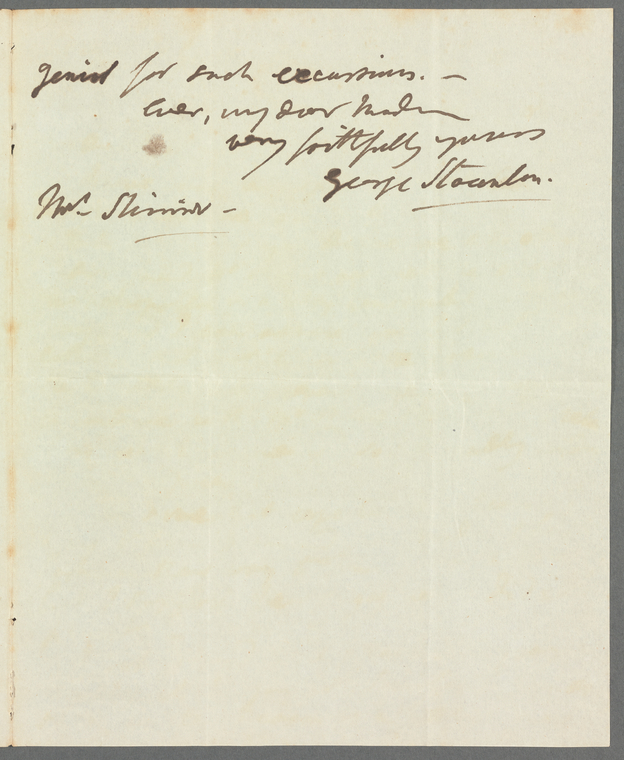 genial for such excursions. —
Ever, my dear Madam
very faithfully yours
George Staunton.
Mrs.